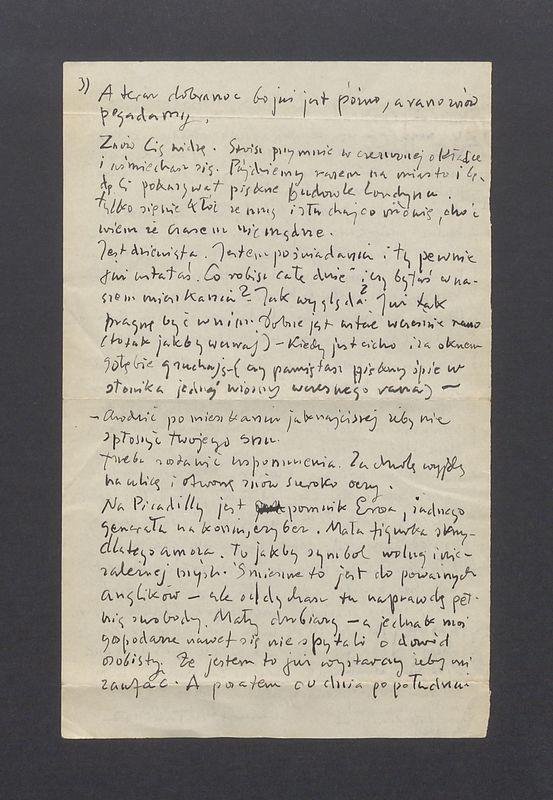 3)
A teraz dobranoc bo już jest późno, a rano znów
pogadamy.
Znów Cię widzę. Śpisz przy mnie w czerwonej okładce
i uśmiechasz się. Pójdziemy razem na miasto i bę-
dę Ci pokazywał piękne budowle Londynu.
tylko się nie kłóć ze mną i słuchaj co mówię, choć
wiem że czasem niemądrze.
Jest dziewiąta. Jestem po śniadaniu i ty pewnie
już wstałaś. Co robisz całe dnie i czy byłaś w na-
szem mieszkaniu? Jak wygląda? Już tak
pragnę być w niem. Dobrze jest wstać wcześnie rano
(to tak jakby wczoraj) – Kiedy jest cicho i za oknem
gołębie gruchają – (czy pamiętasz piękny śpiew
słowika jednej wiosny wczesnego rana) –
– Chodzić po mieszkaniu jak najciszej żeby nie
spłoszyć twojego snu.
Trzeba zostawić wspomnienia. Za chwilę wyjdę
na ulicę i otworzę znów szeroko oczy.
Na Picadilly jest pomnik Erosa, żadnego
generała na koniu, czy bez. Mała figurka skrzy-
dlatego amora. To jakby symbol wolnej i nie-
zależnej myśli. Śmieszne to jest do poważnych
anglików – ale oddychasz tu naprawdę peł-
nią swobody. Mały drobiazg – a jednak moi
gospodarze nawet się nie spytali o dowód
osobisty. Że jestem to już wystarczy żeby mi
zaufać. A pozatem co dnia po południu